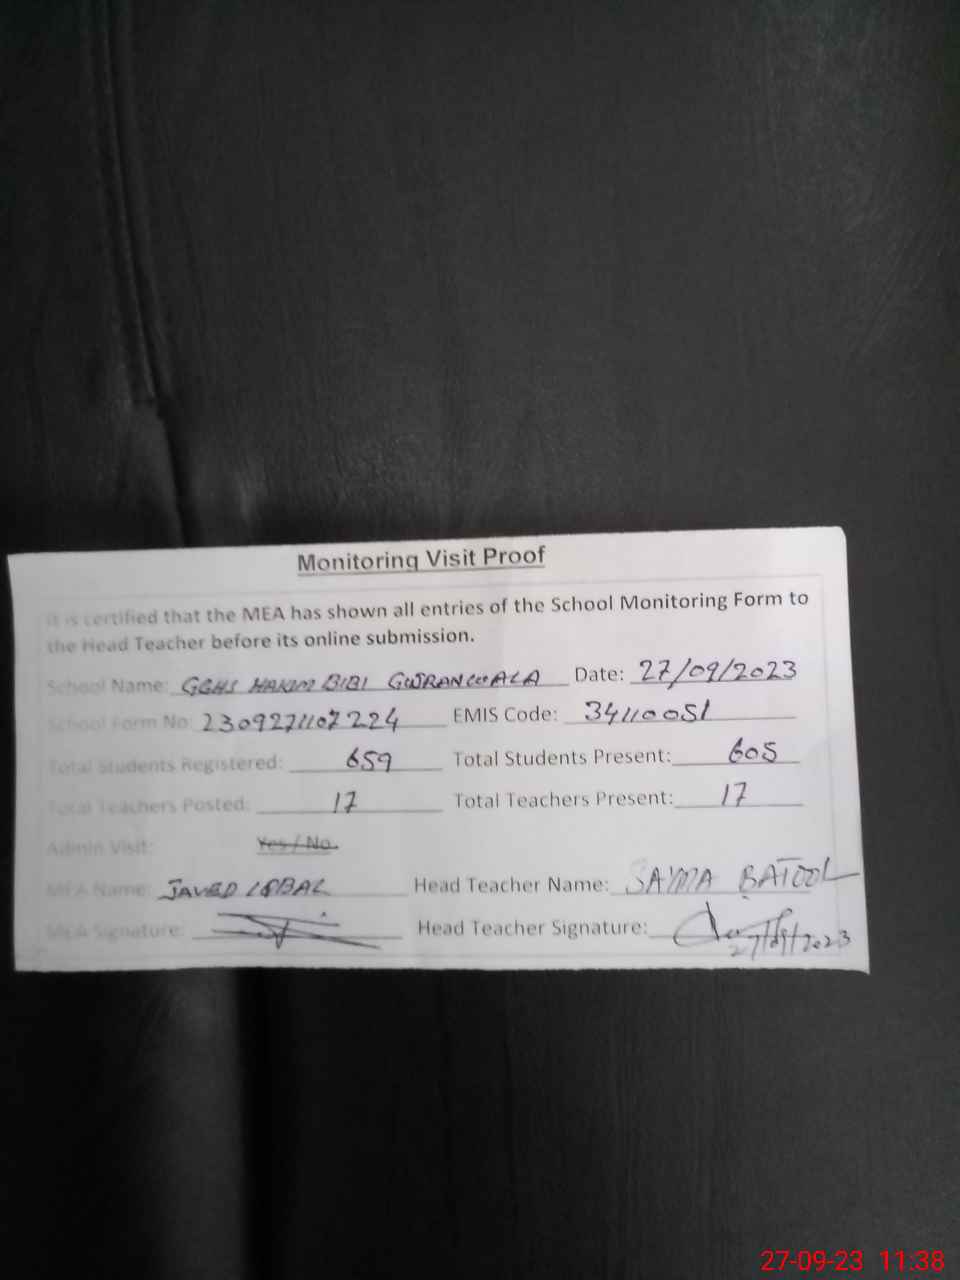 Monitoring Visit Proof
It is certified that the MEA has shown all entries of the School Monitoring Form to
the Head Teacher before its online submission.
School Name: GGHS HAKIM BIBI GUJRANWALA Date: 27/09/2023
School Form No: 2309271107224 EMIS Code: 34110051
Total Students Registered: 659 Total Students Present: 605
Total Teachers Posted: 17 Total Teachers Present: 17
Admin Visit: Yes / No
MEA Name: JAVED IQBAL Head Teacher Name: SAIMA BATOOL
MEA Signature: Head Teacher Signature:
27/09/2023
27-09-23 11:38